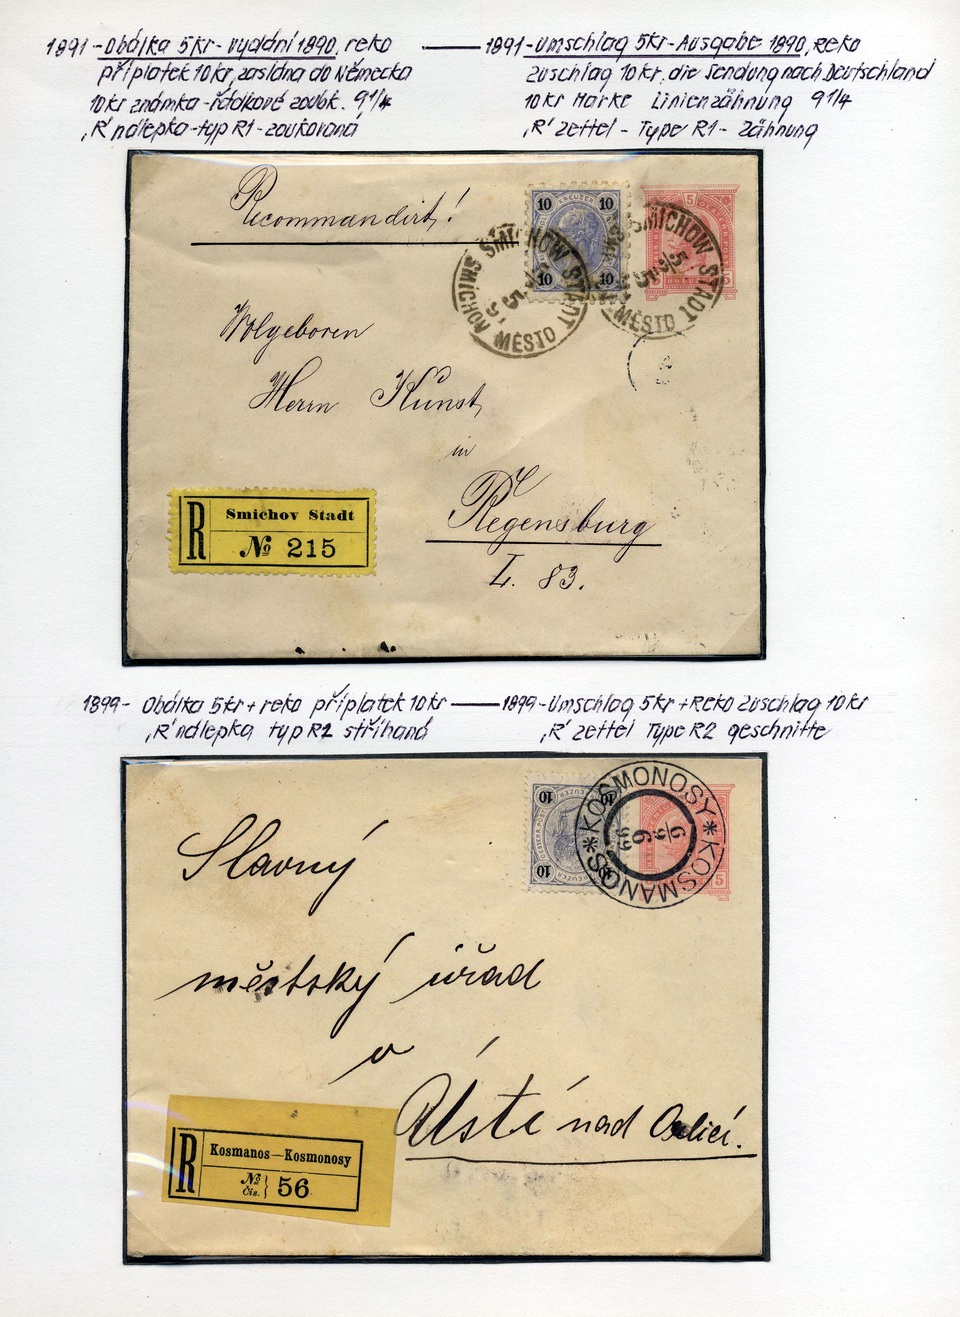 1891 - Obálka 5kr - vydání 1890, reko
příplatek 10kr, zaslána do Německa
10kr známka - řádkové zoubk. 9 1/4
„R" nálepka - typ R1 - zoubkovaná
1891 - Umschlag 5kr - Ausgabe 1890, Reko
zuschlag 10kr, die Sendung nach Deutschland
10kr Marke Linienzähnung 9 1/4
„R" Zettel - Type R1 - Zähnung
Recommandirt!
10 KREUZER 10
10 10
5
5
SMICHOW STADT
SMÍCHOV MĚSTO
SMICHOW STADT
MĚSTO
Wolgeboren
Herrn Kunst
in
Regensburg
I. 83.
R Smichov Stadt
№ 215
1899 - Obálka 5kr + reko příplatek 10kr
„R" nálepka typ R2 stříhaná
1899 - Umschlag 5kr + Reko Zuschlag 10kr
„R" Zettel Type R2 geschnitte
10 10
10 KREUZER
5
*KOSMONOSY*KOSMANOS
6
9
6
99
Slavný
městský úřad
v
Ústí nad Orlicí.
R Kosmanos—Kosmonosy
№
Čís. } 56